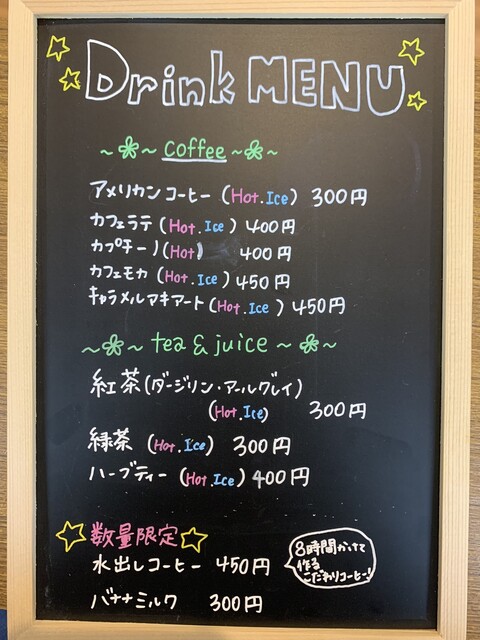 Drink MENU
~ ~ coffee ~ ~
アメリカンコーヒー (Hot.Ice) 300円
カフェラテ (Hot.Ice) 400円
カプチーノ (Hot) 400円
カフェモカ (Hot.Ice) 450円
キャラメルマキアート (Hot.Ice) 450円
~ ~ tea & juice ~ ~
紅茶 (ダージリン・アールグレイ)
(Hot.Ice) 300円
緑茶 (Hot.Ice) 300円
ハーブティー (Hot.Ice) 400円
数量限定
水出しコーヒー 450円
8時間かけて
作る
こだわりコーヒー!
バナナミルク 300円